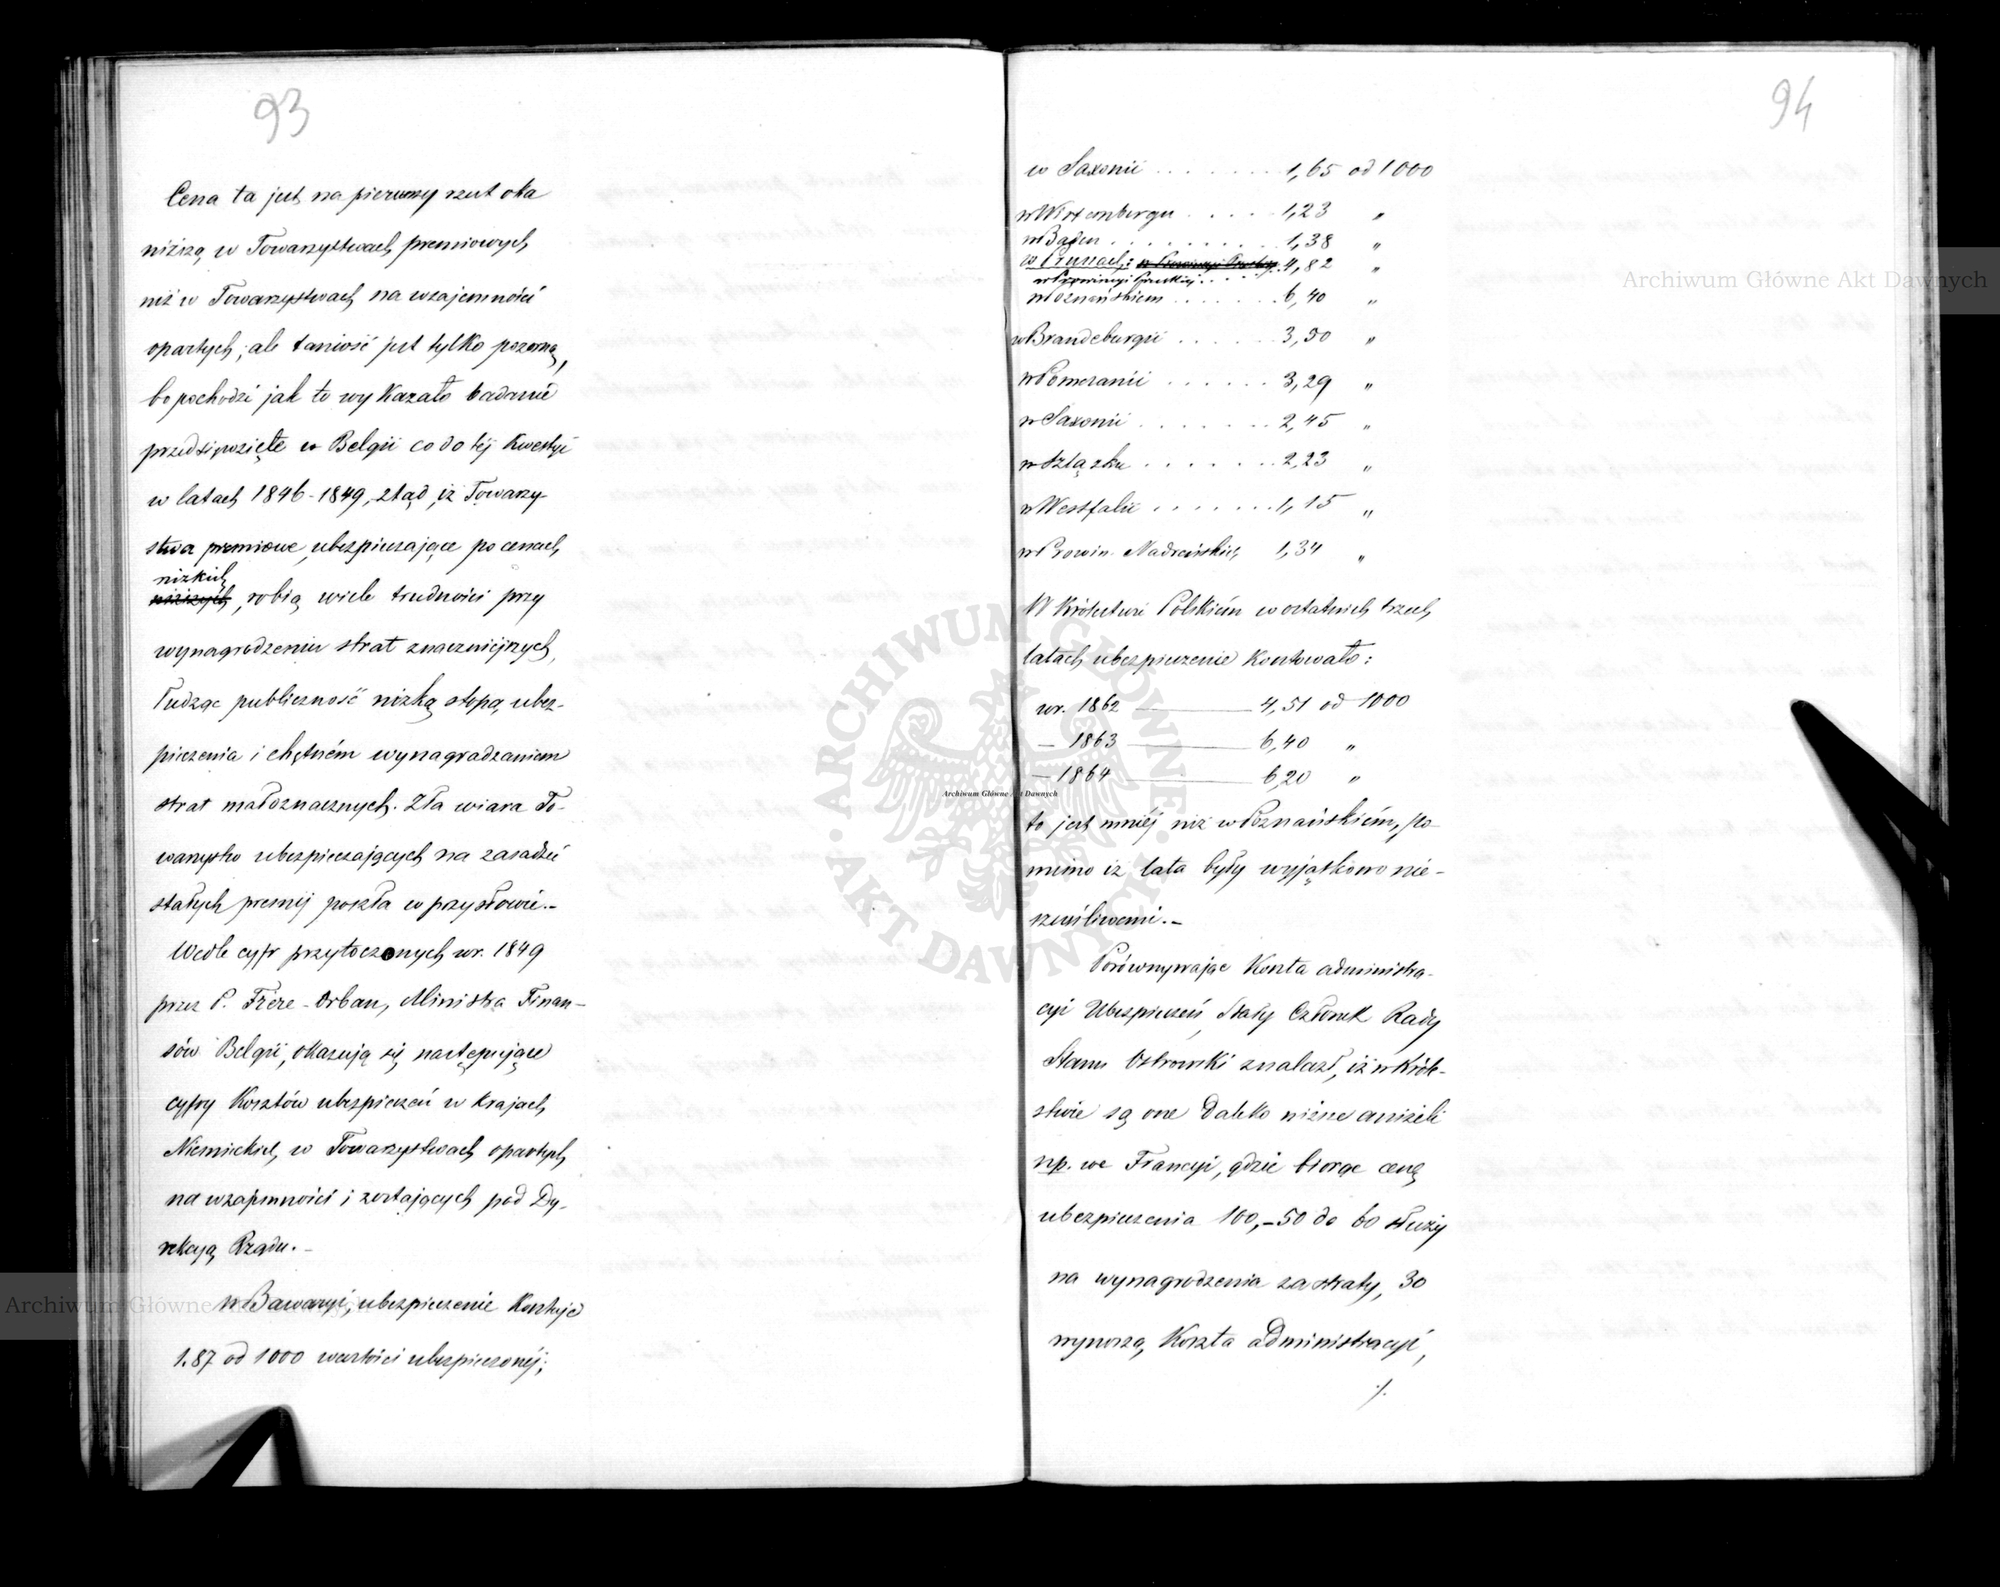 93
Cena ta jest na pierwszy rzut oka
niższą w Towarzystwach premiowych
niż w Towarzystwach na wzajemności
opartych; ale taniość jest tylko pozorną,
bo pochodzi jak to wykazało badanie
przedsięwzięte w Belgii co do tej kwestyi
w latach 1846-1849, ztąd, iż Towarzy-
stwa premiowe, ubezpieczające po cenach
nizkich
niższych, robią wiele trudności przy
wynagrodzeniu strat znaczniejszych,
łudząc publiczność nizką stopą ubez-
pieczenia i chętném wynagradzaniem
strat małoznacznych. Zła wiara To-
warzystw ubezpieczających na zasadzie
stałych premij poszła w przysłowie.-
Wedle cyfr przytoczonych w r. 1849
przez P. Frère-Orban, Ministra Finan-
sów Belgii, okazują się następujące
cyfry Kosztów ubezpieczeń w krajach
Niemieckich, w Towarzystwach opartych
na wzajemności i zostających pod Dy-
rekcyą Rządu.-
w Bawaryi, ubezpieczenie Kosztuje
1.87 od 1000 wartości ubezpieczonéj;
94
w Saxonii . . . . . . . . 1,65 od 1000
w Wirtembergu . . . . . 1,23 "
w Baden . . . . . . . . . 1,38 "
w Prusach: w Prowincyi Pruskiej 4,82 "
w Prowincyi Pruskiej . . . .
w Poznańskiem . . . . . . 6,40 "
w Brandeburgii . . . . . . 3,50 "
w Pomeranii . . . . . . 3,29 "
w Saxonii . . . . . . . 2,45 "
w Szlązku . . . . . . . 2,23 "
w Westfalii . . . . . . . 1,15 "
w Prowin. Nadreńskich 1,34 "
W Królestwie Polskiém w ostatnich trzech
latach ubezpieczenie Kosztowało:
w r. 1862 ——— 4,51 od 1000
— 1863 ——— 6,40 "
— 1864 ——— 6,20 "
to jest mniéj niż w Poznańskiém, po-
mimo iż lata były wyjątkowo nie-
szczęśliwemi.-
Porównywając Koszta administra-
cyi Ubezpieczeń, Stały Członek Rady
Stanu Ostrowski znalazł, iż w Króle-
stwie są one daleko niższe aniżeli
np. we Francyi, gdzie biorąc cenę
ubezpieczenia 100,-50 do 60 służy
na wynagrodzenia za straty, 30
wynoszą Koszta administracyi,
./.
Archiwum Główne Akt Dawnych
Archiwum Główne Akt Dawnych
Archiwum Główne Akt Dawnych
ARCHIWUM GŁÓWNE AKT DAWNYCH